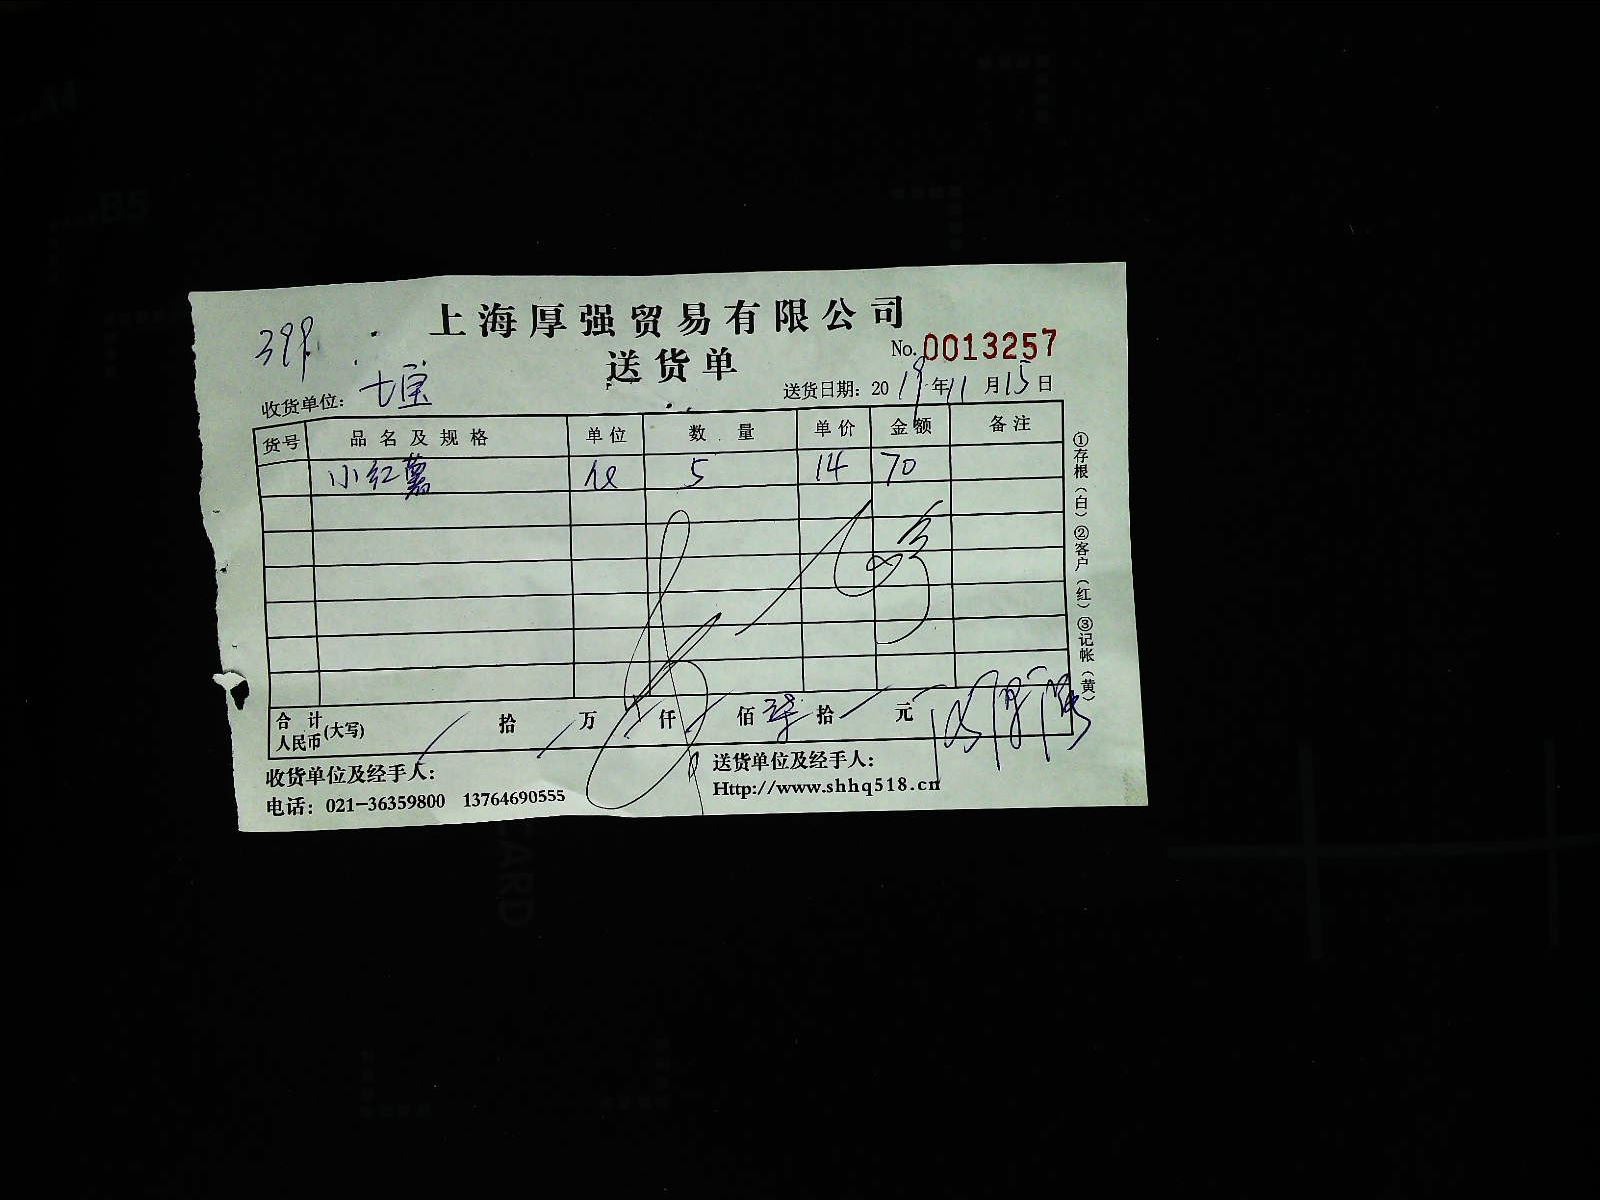 上海厚强贸易有限公司
送货单
No. 0013257
收货单位： 七宝
送货日期： 2019年11月15日
货号 品名及规格 单位 数量 单价 金额 备注
小红薯 5 14 70
合计人民币(大写) 拾 万 仟 佰 柒拾 元
收货单位及经手人：
送货单位及经手人：
电话： 021-36359800 13764690555
Http://www.shhq518.cn
①存根（白）②客户（红）③记帐（黄）